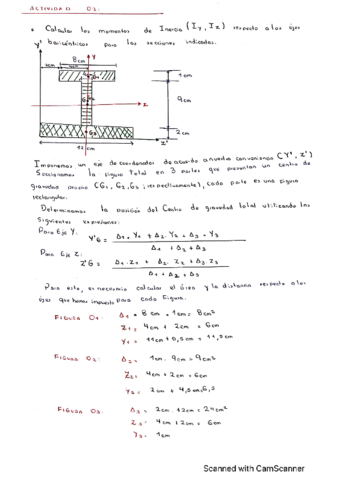 ACTIVIDAD 02:
* Calcular los momentos de Inercia (Iy, Iz) respecto a los ejes
y' baricéntricos para las secciones indicadas.
8cm
Y
1cm
9cm
Z
2cm
Z'
12 cm
Imponemos un eje de coordenadas de acuerdo a nuestra convención (Y', Z')
Seccionamos la figura Total en 3 partes que presentan un centro de
gravedad propio (G1, G2, G3; respectivamente), cada parte es una figura
rectangular.
Determinamos la posición del Centro de gravedad total utilizando las
siguientes expresiones:
Para Eje Y:
Y'G = Δ1 . Y1 + Δ2 . Y2 + Δ3 . Y3
Δ1 + Δ2 + Δ3
Para Eje Z:
Z'G = Δ1 . Z1 + Δ2 . Z2 + Δ3 Z3
Δ1 + Δ2 + Δ3
Para esto, es necesario calcular el área y la distancia respecto a los
ejes que hemos impuesto para cada Figura.
FIGURA 01: Δ1 = 8 cm . 1cm = 8cm²
Z1 = 4cm + 2cm = 6cm
Y1 = 11cm + 0,5cm = 11,5cm
FIGURA 02: Δ2 = 1cm . 9cm = 9cm²
Z2 = 4cm + 2cm = 6cm
Y2 = 2cm + 4,5cm = 6,5
FIGURA 03: Δ3 = 2cm . 12cm = 24cm²
Z3 = 4cm + 2cm = 6cm
Y3 = 1cm
Scanned with CamScanner